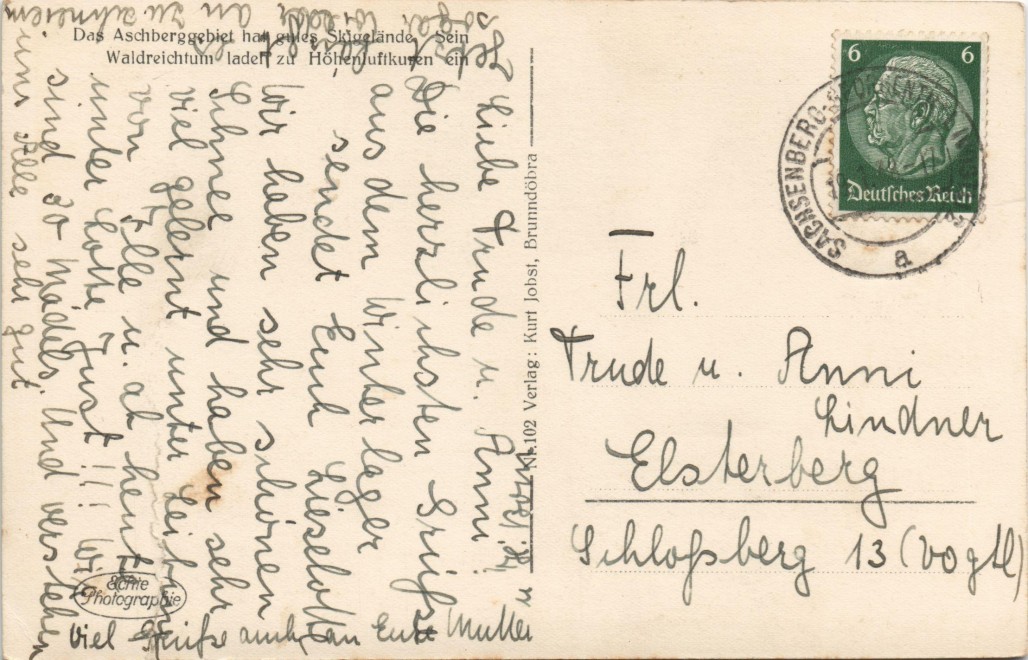 Das Aschberggebiet hat gutes Skigelände. Sein
Waldreichtum ladet zu Höhenluftkuren ein
Liebe Trude u. Anni!
Die herzlichsten Grüße
aus dem Winterlager
sendet Euch Lieselott
Wir haben sehr schönen
Schnee und haben sehr
viel gelernt unter Leitung
von Ille u. ab heut
unter Lotte Just!!! Wir
sind 30 Mädels. Und verstehen
uns Alle sehr gut
Jetzt fängt es
sogar wieder an zu schneien
viel Grüße auch an Eure Mutter
u
Echte
Photographie
Nr. 102 Verlag: Kurt Jobst, Brunndöbra
6 6
Deutsches Reich
SACHSENBERG-GEORGENTHAL
a
Frl.
Trude u. Anni
Lindner
Elsterberg
Schloßberg 13 (Vogtl)